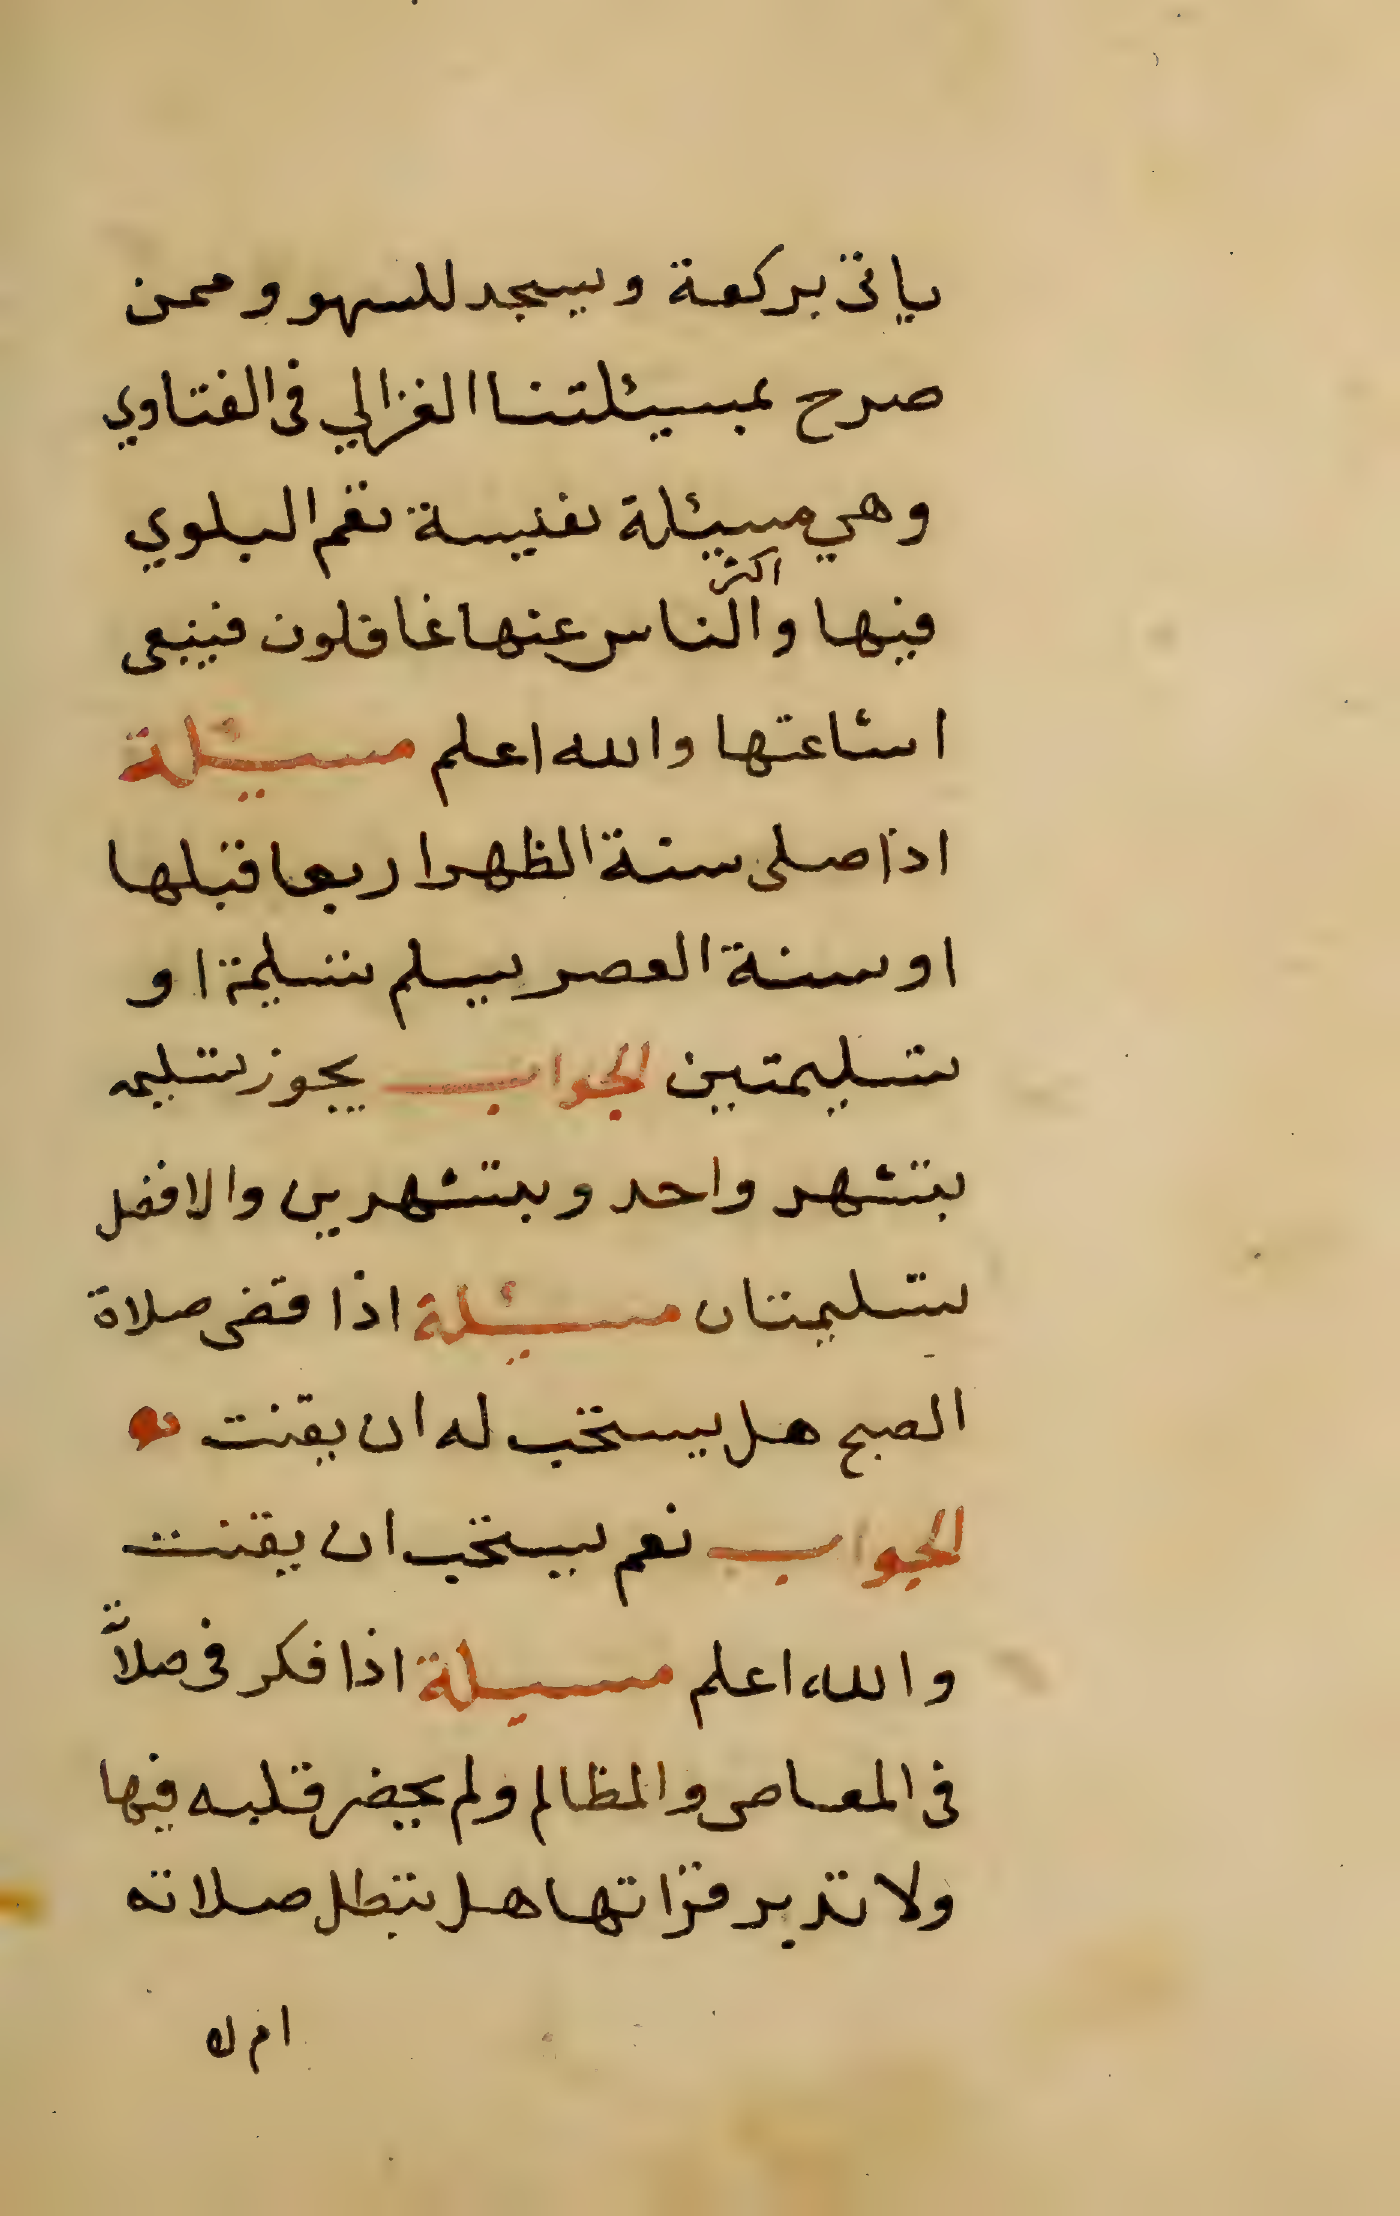 ياتي بركعة ويسجد للسهو وممن
صرح بمسيئلتنا الغزالي في الفتاوي
وهي مسيئلة نفيسة تعم البلوي
اكثر
فيها والناس عنها غافلون فينبغى
اشاعتها والله اعلم مسيئلة
اذا صلى سنة الظهر اربعا قبلها
او سنة العصر يسلم تسليمة او
تسليمتين الجواب يجوز تسليمه
بتشهد واحد وبتشهدين والافضل
تسليمتان مسيئلة اذا قضى صلاة
الصبح هل يستحب له ان يقنت
الجواب نعم يستحب ان يقنت
والله اعلم مسيلة اذا فكر في صلاة
في المعاصى والمظالم ولم يحضر قلبه فيها
ولا تدبر قراتها هل تبطل صلاته
ام لا